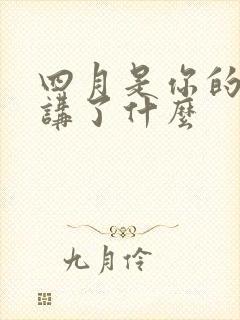 四月是你的
講了什麼
九月伶